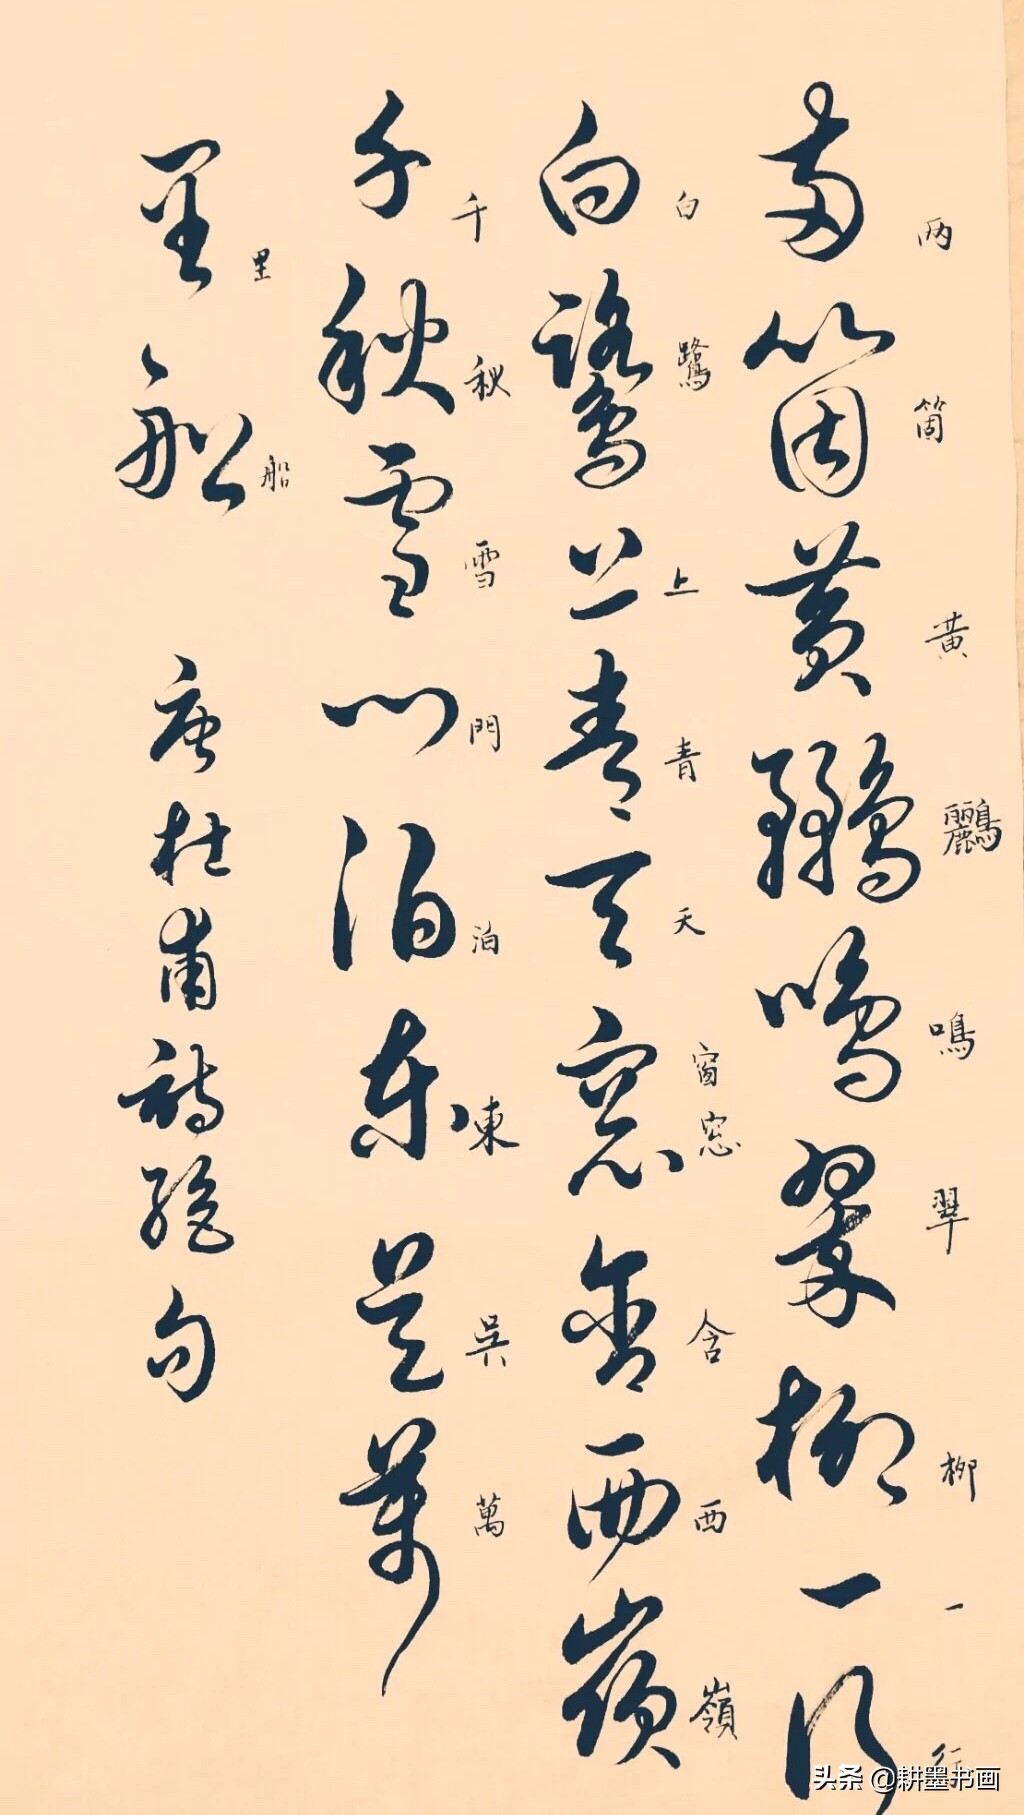 两箇黄鸝鳴翠柳一行
两箇黄鸝鳴翠柳一行
白鷺上青天窓含西嶺
白鷺上青天窗窓含西嶺
千秋雪門泊東吳萬
千秋雪門泊東吳萬
里船 唐杜甫詩絕句
里船
头条 @耕墨书画